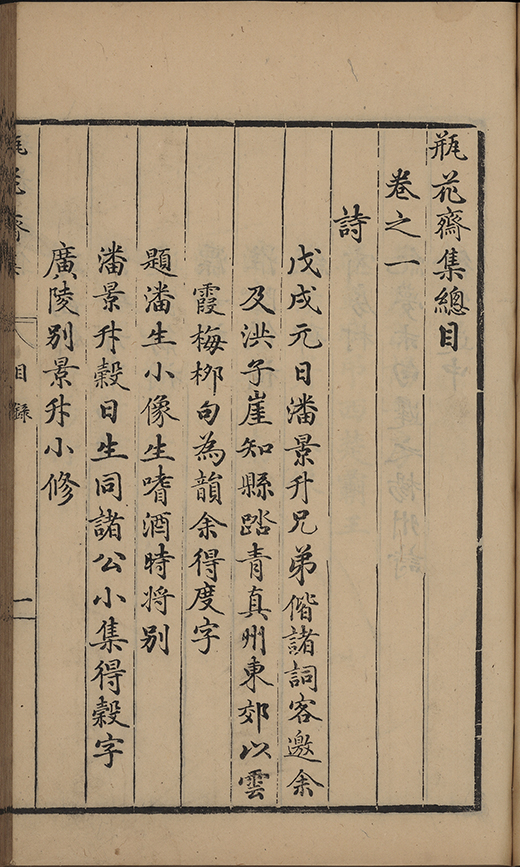 瓶花齋集總目
卷之一
詩
戊戌元日潘景升兄弟偕諸詞客邀余
及洪子崖知縣踏青真州東郊以雲
霞梅柳句為韻余得度字
題潘生小像生嗜酒時将别
潘景升穀日生同諸公小集得穀字
廣陵别景升小修
瓶花齋集
目録
一